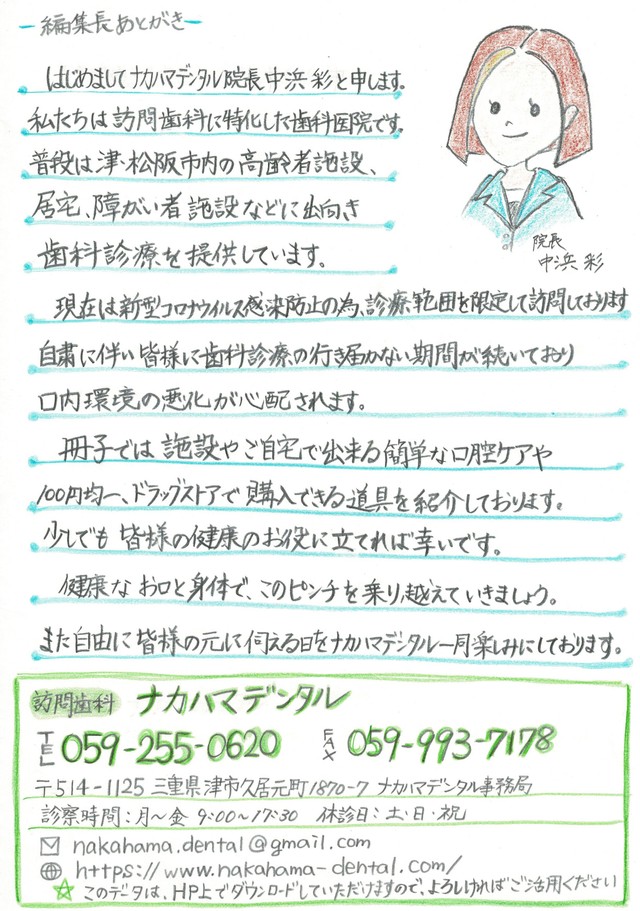 －編集長あとがき－
はじめましてナカハマデンタル院長中浜 彩と申します。
私たちは訪問歯科に特化した歯科医院です。
普段は津・松阪市内の高齢者施設、
居宅、障がい者施設などに出向き
歯科診療を提供しています。
院長
中浜 彩
現在は新型コロナウイルス感染防止の為、診療範囲を限定して訪問しております
自粛に伴い皆様に歯科診療の行き届かない期間が続いており
口内環境の悪化が心配されます。
冊子では施設やご自宅で出来る簡単な口腔ケアや
100円均一、ドラッグストアで購入できる道具を紹介しております。
少しでも皆様の健康のお役に立てれば幸いです。
健康なお口と身体で、このピンチを乗り越えていきましょう。
また自由に皆様の元に伺える日をナカハマデンタル一同楽しみにしております。
訪問歯科 ナカハマデンタル
TEL 059-255-0620 FAX 059-993-7178
〒514-1125 三重県津市久居元町1870-7 ナカハマデンタル事務局
診察時間：月～金 9:00～17:30 休診日：土・日・祝
nakahama.dental@gmail.com
https://www.nakahama-dental.com/
☆このデータは、HP上でダウンロードしていただけますので、よろしければご活用ください